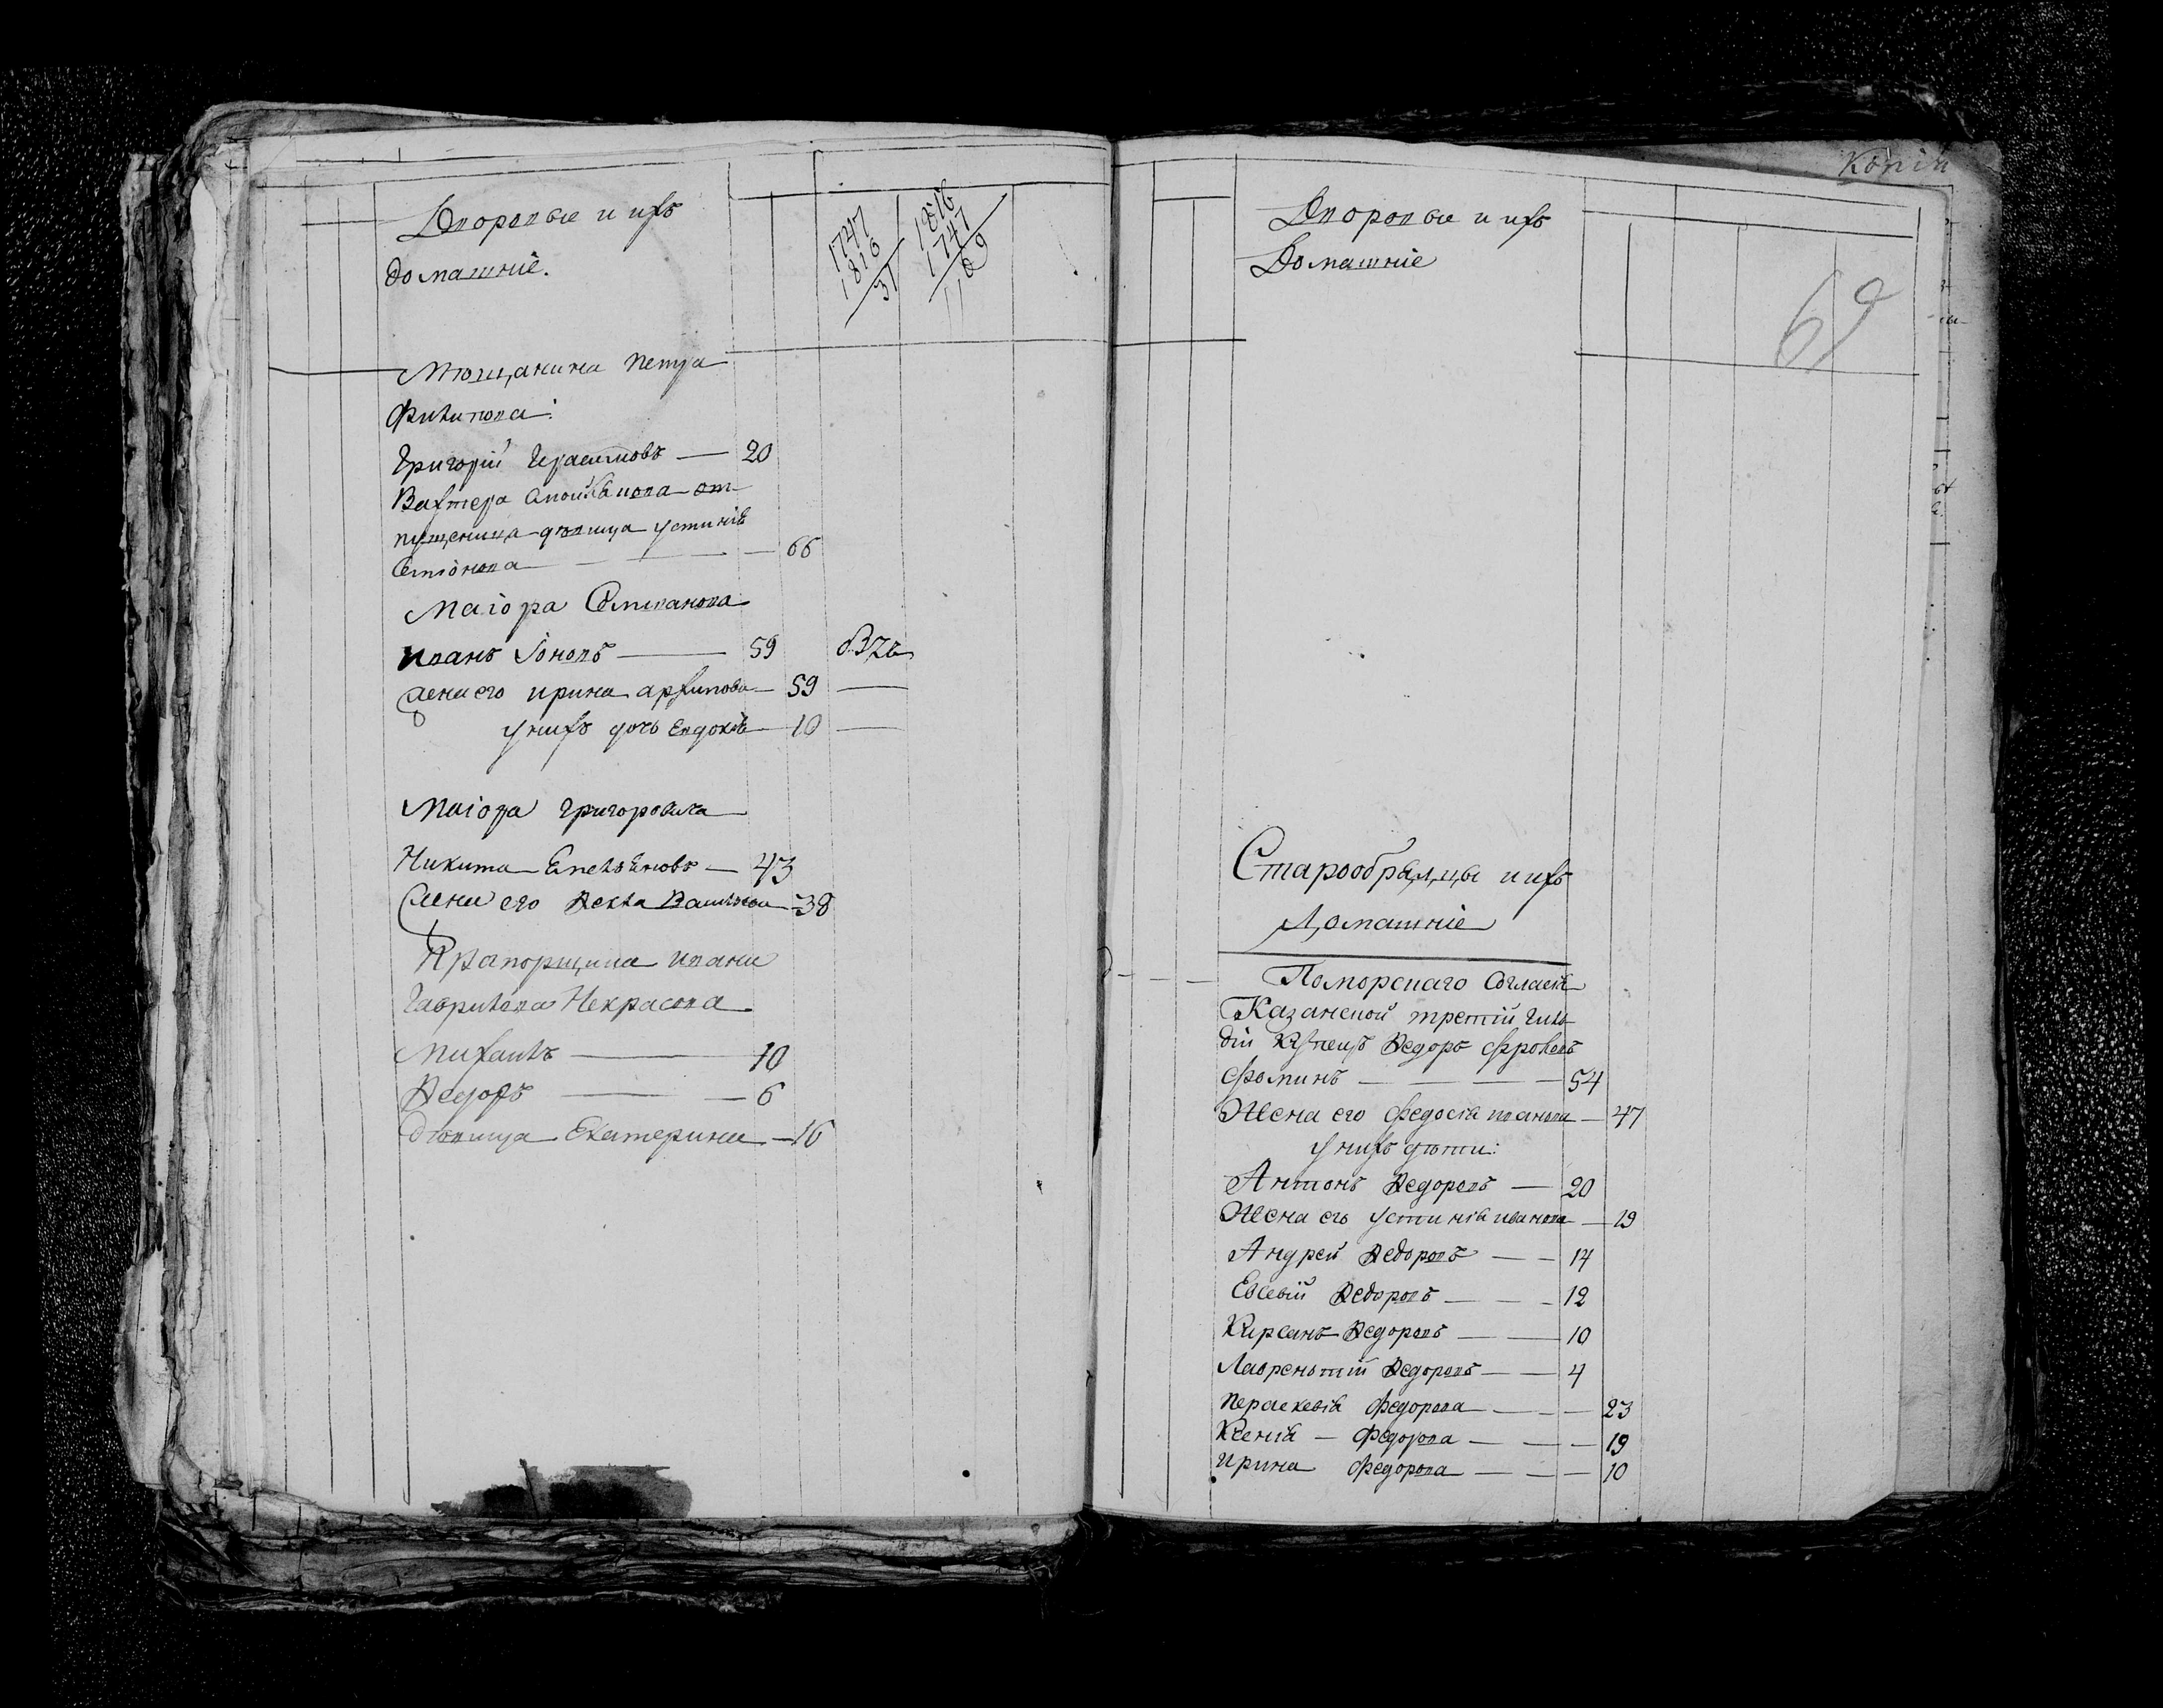 Дворовые и ихъ
домашніе.
1747
1816
31
1816
1747
Мѣщанина Петра
Филипова:
Григорій Герасимовъ — 20
Вахтера от
пущеница дѣвица Устинія
Семіонова — 66
Маіора Степанова
Иванъ Іоновъ — 59
Жена его Ирина Архипова — 59 —
у нихъ дочь Евдокія — 10 —
Маіора Григоровича
Никита Емельяновъ — 43
Жена его Ѳекла Васильева — 38
Прапорщика Ивана
Гаврилова Некрасова
Михаилъ — 10
Ѳедоръ — 6
Дѣвица Екатерина — 16
Копіи
Дворовые и ихъ
Домашніе
69
Старообрядцы и ихъ
Домашніе
Поморскаго Согласія
Казанской третій гиль
діи купецъ Ѳедоръ Фроловъ
Фоминъ — 54
Жена его Федосія Иванова — 47
у нихъ дѣти:
Антонъ Ѳедоровъ — 20
Жена его Устинія Иванова — 19
Андрей Ѳедоровъ — 14
Евсевій Ѳедоровъ — 12
Кирсанъ Ѳедоровъ — 10
Лаврентій Ѳедоровъ — 4
Пераскевія Федорова — 23
Ксенія — Федорова — 19
Ирина Федорова — 10